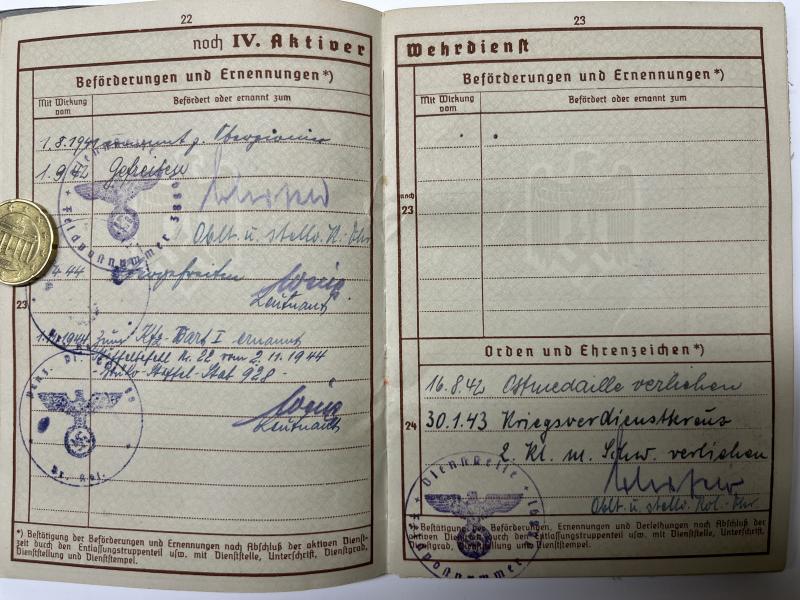 22
noch IV. Aktiver
Beförderungen und Ernennungen*)
Mit Wirkung vom
Befördert oder ernannt zum
1.8.1941 ernannt z. Oberpionier
1.9.42 Gefreiten
Oblt. u. stellv. K.
4.44 Obergefreiten
Leutnant
23
1944 zum Kfz.-Wart I ernannt
Nr. 22 vom 2.11.1944
Staffel-Stab 928-
Leutnant
Feldpostnummer
*) Bestätigung der Beförderungen und Ernennungen nach Abschluß der aktiven Dienst-
zeit durch den Entlassungstruppenteil usw. mit Dienststelle, Unterschrift, Dienstgrad,
Dienststellung und Dienststempel.
23
Wehrdienst
Beförderungen und Ernennungen*)
Mit Wirkung vom
Befördert oder ernannt zum
noch
23
Orden und Ehrenzeichen*)
16.8.42 Ostmedaille verliehen
24
30.1.43 Kriegsverdienstkreuz
2. Kl. m. Schw. verliehen
Oblt. u. stellv. Kol.
Dienststelle
Feldpostnummer
*) Bestätigung der Beförderungen, Ernennungen und Verleihungen nach Abschluß der
aktiven Dienstzeit durch den Entlassungstruppenteil usw. mit Dienststelle, Unterschrift,
Dienstgrad, Dienststellung und Dienststempel.